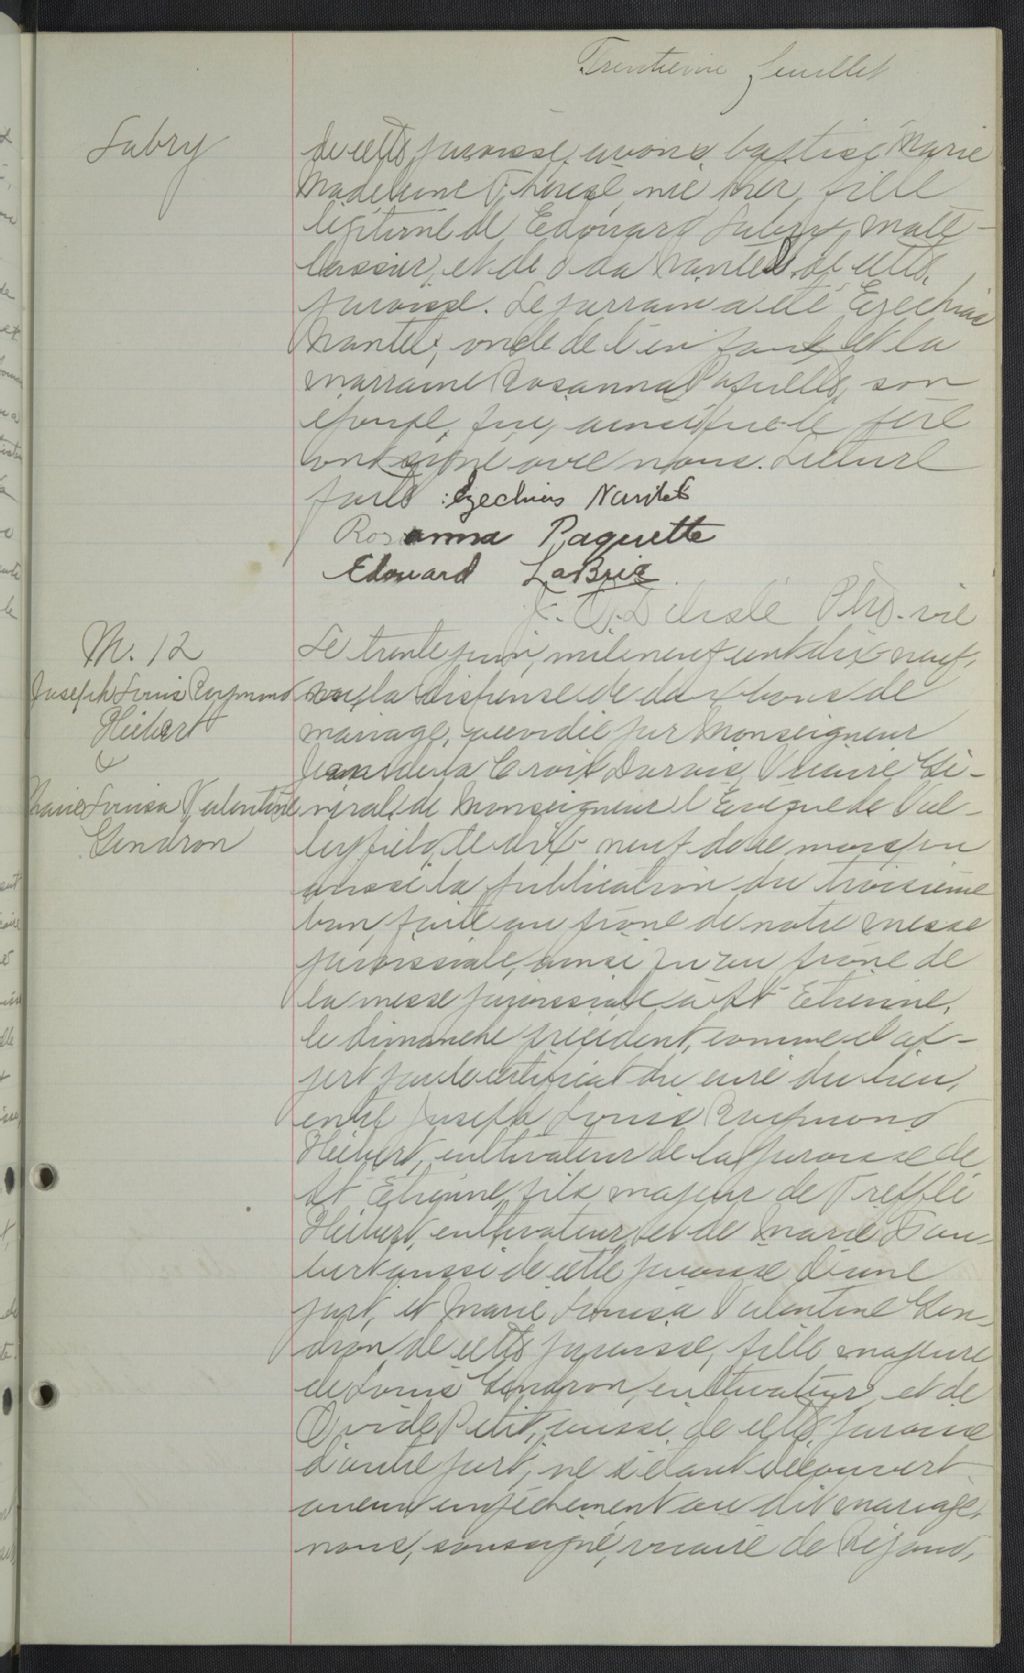 Trentième feuillet
Labry
de cette paroisse, avons baptisé Marie
Madeleine Thérèse née hier, fille
légitime de Edouard Labry, mate-
lassier, et de Oda Nantel, de cette
paroisse. Le parrain a été Ezechias
Nantel, oncle de l'enfant, et la
marraine Rosanna Paquette, son
épouse, qui, ainsi que le père
ont signé avec nous. Lecture
faite : Ezechias Nantel
Rosanna Paquette
Edouard LaBrie
Delisle Ptre. vic
M. 12
Joseph Louis Raymond
Hébert
&
Marie Louisa Valentine
Gendron
Le trente juin, mil neuf cent dix-neuf,
vu la dispense de deux bans de
mariage, accordée par Monseigneur
Jean de la Croix Dorais, Vicaire Gé-
néral de Monseigneur l'Evêque de Val-
leyfield, le dix-neuf de ce mois, vu
aussi la publication du troisième
ban, faite au prône de notre messe
paroissiale, ainsi qu'au prône de
la messe paroissiale à St Etienne,
le dimanche précédent, comme il ap-
pert par le certificat du curé du lieu,
entre Joseph Louis Raymond
Hébert, cultivateur de la paroisse de
St Etienne, fils majeur de Trefflé
Hébert, cultivateur, et de Marie Dau-
bert aussi de cette paroisse d'une
part, et Marie Louisa Valentine Gen-
dron, de cette paroisse, fille majeure
de Louis Gendron, cultivateur, et de
Ovide Petit, aussi de cette paroisse
d'autre part, ne s'étant découvert
aucun empêchement au dit mariage,
nous, soussigné, vicaire de Rigaud,